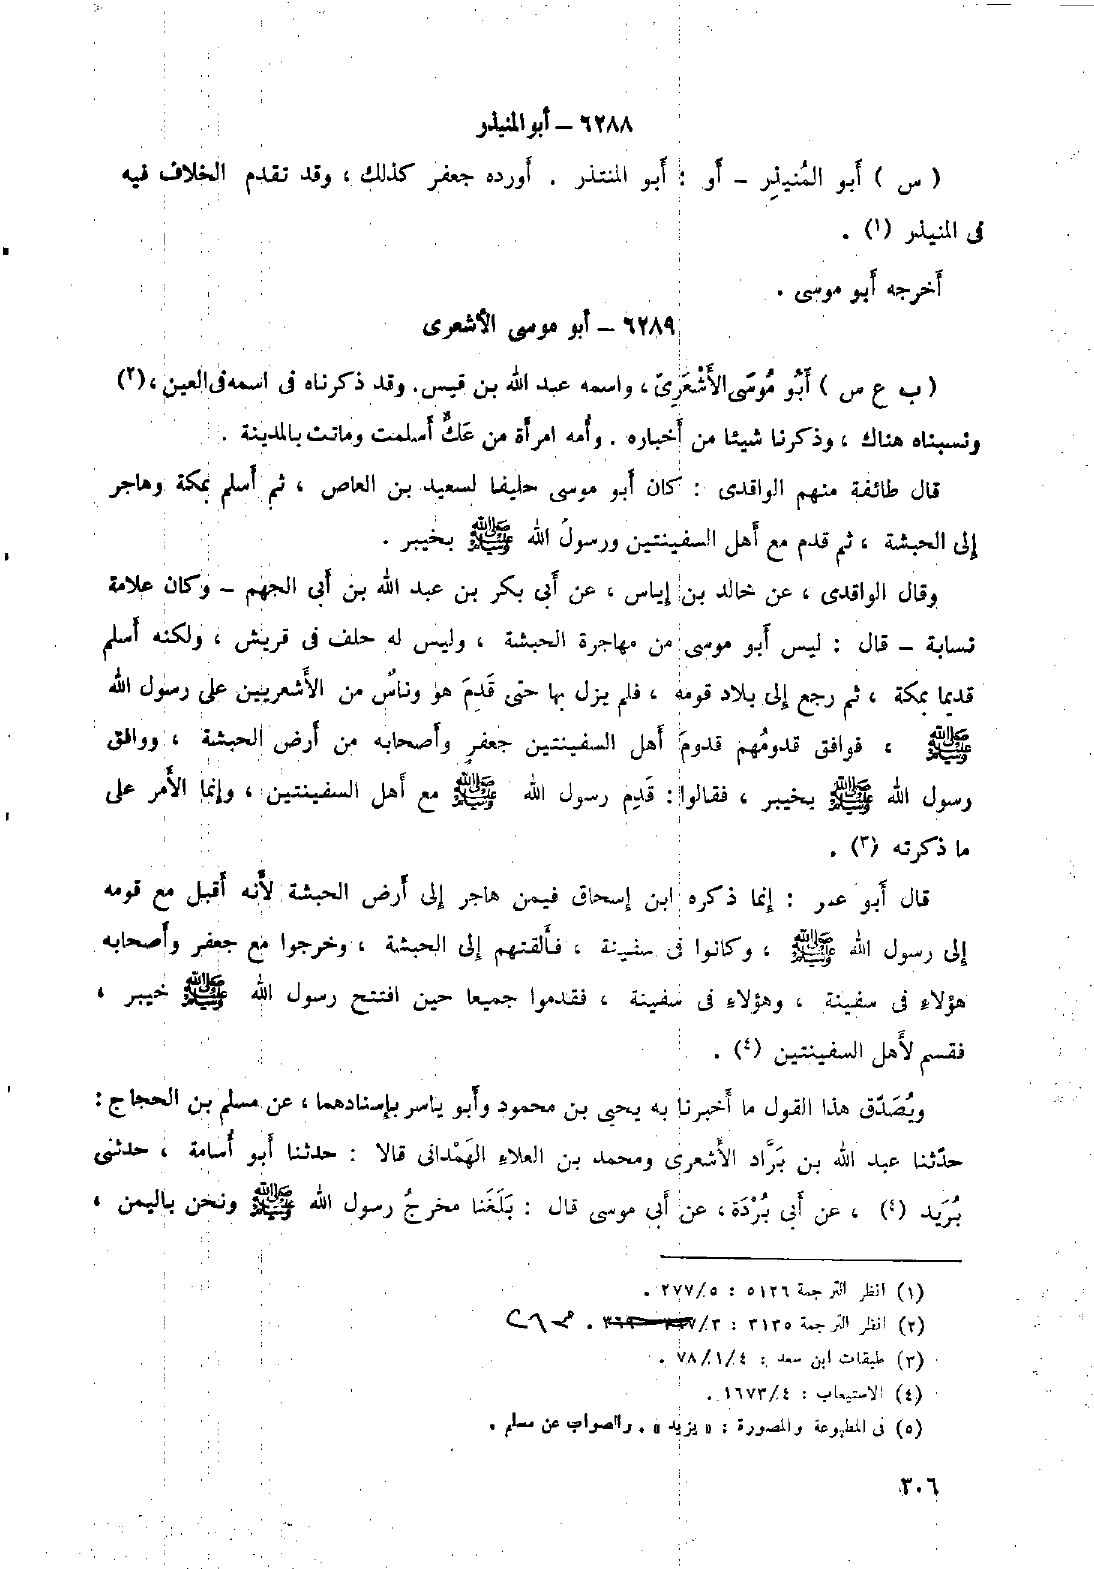 ٦٢٨٨ – أبو المنيذر
( س ) أَبو المُنيذِر – أَو : أَبو المنتذر . أَورده جعفر كذلك ، وقد تقدم الخلاف فيه
فى المنيذر (١) .
أَخرجه أَبو موسى .
٦٢٨٩ – أبو موسى الأشعرى
( ب ع س ) أَبُو مُوسَى الأَشْعَرِىّ ، واسمه عبد الله بن قيس . وقد ذكرناه فى اسمه فى العين ، (٢)
ونسبناه هناك ، وذكرنا شيئا من أَخباره . وأُمه امرأَة من عَكٍّ أَسلمت وماتت بالمدينة .
قال طائفة منهم الواقدى : كان أَبو موسى حليفا لسعيد بن العاص ، ثم أَسلم بمكة وهاجر
إلى الحبشة ، ثم قدم مع أَهل السفينتين ورسولُ الله ﷺ بخيبر .
وقال الواقدى ، عن خالد بن إياس ، عن أَبى بكر بن عبد الله بن أَبى الجهم – وكان علامة
نسابة – قال : ليس أَبو موسى من مهاجرة الحبشة ، وليس له حلف فى قريش ، ولكنه أَسلم
قديما بمكة ، ثم رجع إلى بلاد قومه ، فلم يزل بها حتى قَدِمَ هو وناسٌ من الأَشعريين على رسول الله
ﷺ ، فوافق قدومُهم قدومَ أَهل السفينتين جعفرٍ وأَصحابه من أَرض الحبشة ، ووافق
رسول الله ﷺ بخيبر ، فقالوا : قَدِم رسول الله ﷺ مع أَهل السفينتين ، وإنما الأَمر على
ما ذكرته (٣) .
قال أَبو عمر : إنما ذكره ابن إسحاق فيمن هاجر إلى أَرض الحبشة لأَنه أَقبل مع قومه
إلى رسول الله ﷺ ، وكانوا فى سفينة ، فأَلقتهم إلى الحبشة ، وخرجوا مع جعفر وأَصحابه
هؤلاءِ فى سفينة ، وهؤلاءِ فى سفينة ، فقدموا جميعا حين افتتح رسول الله ﷺ خيبر ،
فقسم لأَهل السفينتين (٤) .
ويُصَدّق هذا القول ما أَخبرنا به يحيى بن محمود وأَبو ياسر بإسنادهما ، عن مسلم بن الحجاج :
حدّثنا عبد الله بن بَرَّاد الأَشعرى ومحمد بن العلاءِ الهَمْدانى قالا : حدثنا أَبو أُسامة ، حدثنى
بُرَيد (٤) ، عن أَبى بُرْدَة ، عن أَبى موسى قال : بَلَغَنا مخرجُ رسول الله ﷺ ونحن باليمن ،
(١) انظر الترجمة ٥١٢٦ : ٢٧٧/٥ .
(٢) انظر الترجمة ٣١٣٥ : ٣/
(٣) طبقات ابن سعد : ٧٨/١/٤ .
(٤) الاستيعاب : ١٦٧٣/٤ .
(٥) فى المطبوعة والمصورة : « يزيد » . والصواب عن مسلم .
٣٠٦